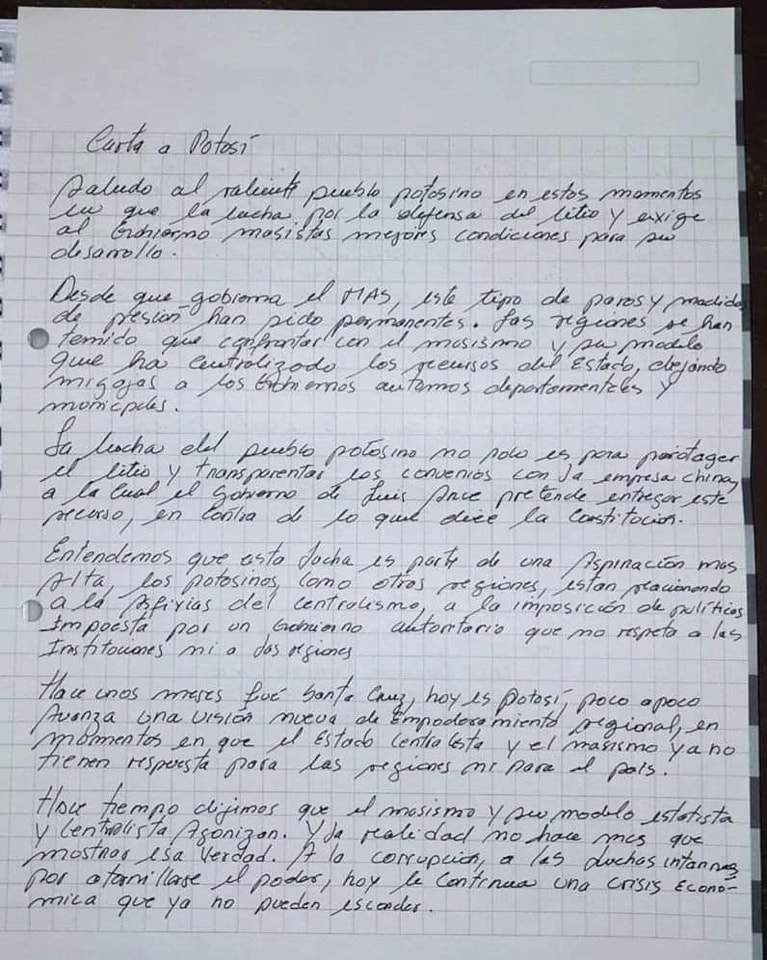 Carta a Potosí
Saludo al valiente pueblo potosino en estos momentos
en que la lucha por la defensa del litio y exige
al Gobierno masistas mejores condiciones para su
desarollo.
Desde que gobierna el MAS, este tipo de paros y medidas
de presion han sido permanentes. Las regiones se han
temido que confrontar con el masismo y su modelo
que ha centralizado los recursos del Estado, dejando
migajas a los Gobiernos autonomos departamentales y
municipales.
La lucha del pueblo potosino no solo es para protager
el litio y transparentar los convenios con la empresa china,
a la cual el Gobierno de Luis Arce pretende entregar este
recurso, en contra de lo que dice la Constitucion.
Entendemos que esta lucha es parte de una Aspiración mas
Alta, los potosinos, como otras regiones, estan reacionando
a la Asfixias del centralismo, a la imposición de políticas
Impuesta por un Gobierno autoritario que no respeta a las
Instituciones ni a las regiones
Hace unos meses fué Santa Cruz, hoy es Potosí, poco apoco
Avanza una visión nueva de Empoderamiento regional, en
momentos en que el Estado Centralista y el masismo ya no
tienen respuesta para las regiones ni para el país.
Hace tiempo dijimos que el masismo y su modelo estatista
y Centralista Agonizan. Y la realidad no hace mas que
mostrar esa Verdad. A la corrupción, a las luchas internas
por atornillarse el poder, hoy le continua una crisis Econo-
mica que ya no pueden esconder.